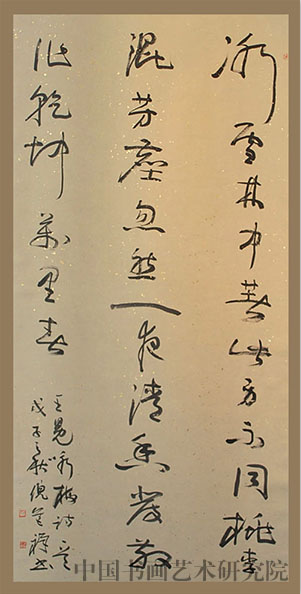 冰雪林中著此身不同桃李
混芳塵忽然一夜清香發散
作乾坤萬里春
王冕咏梅詩
戊子之秋倪書
中国书画艺术研究院